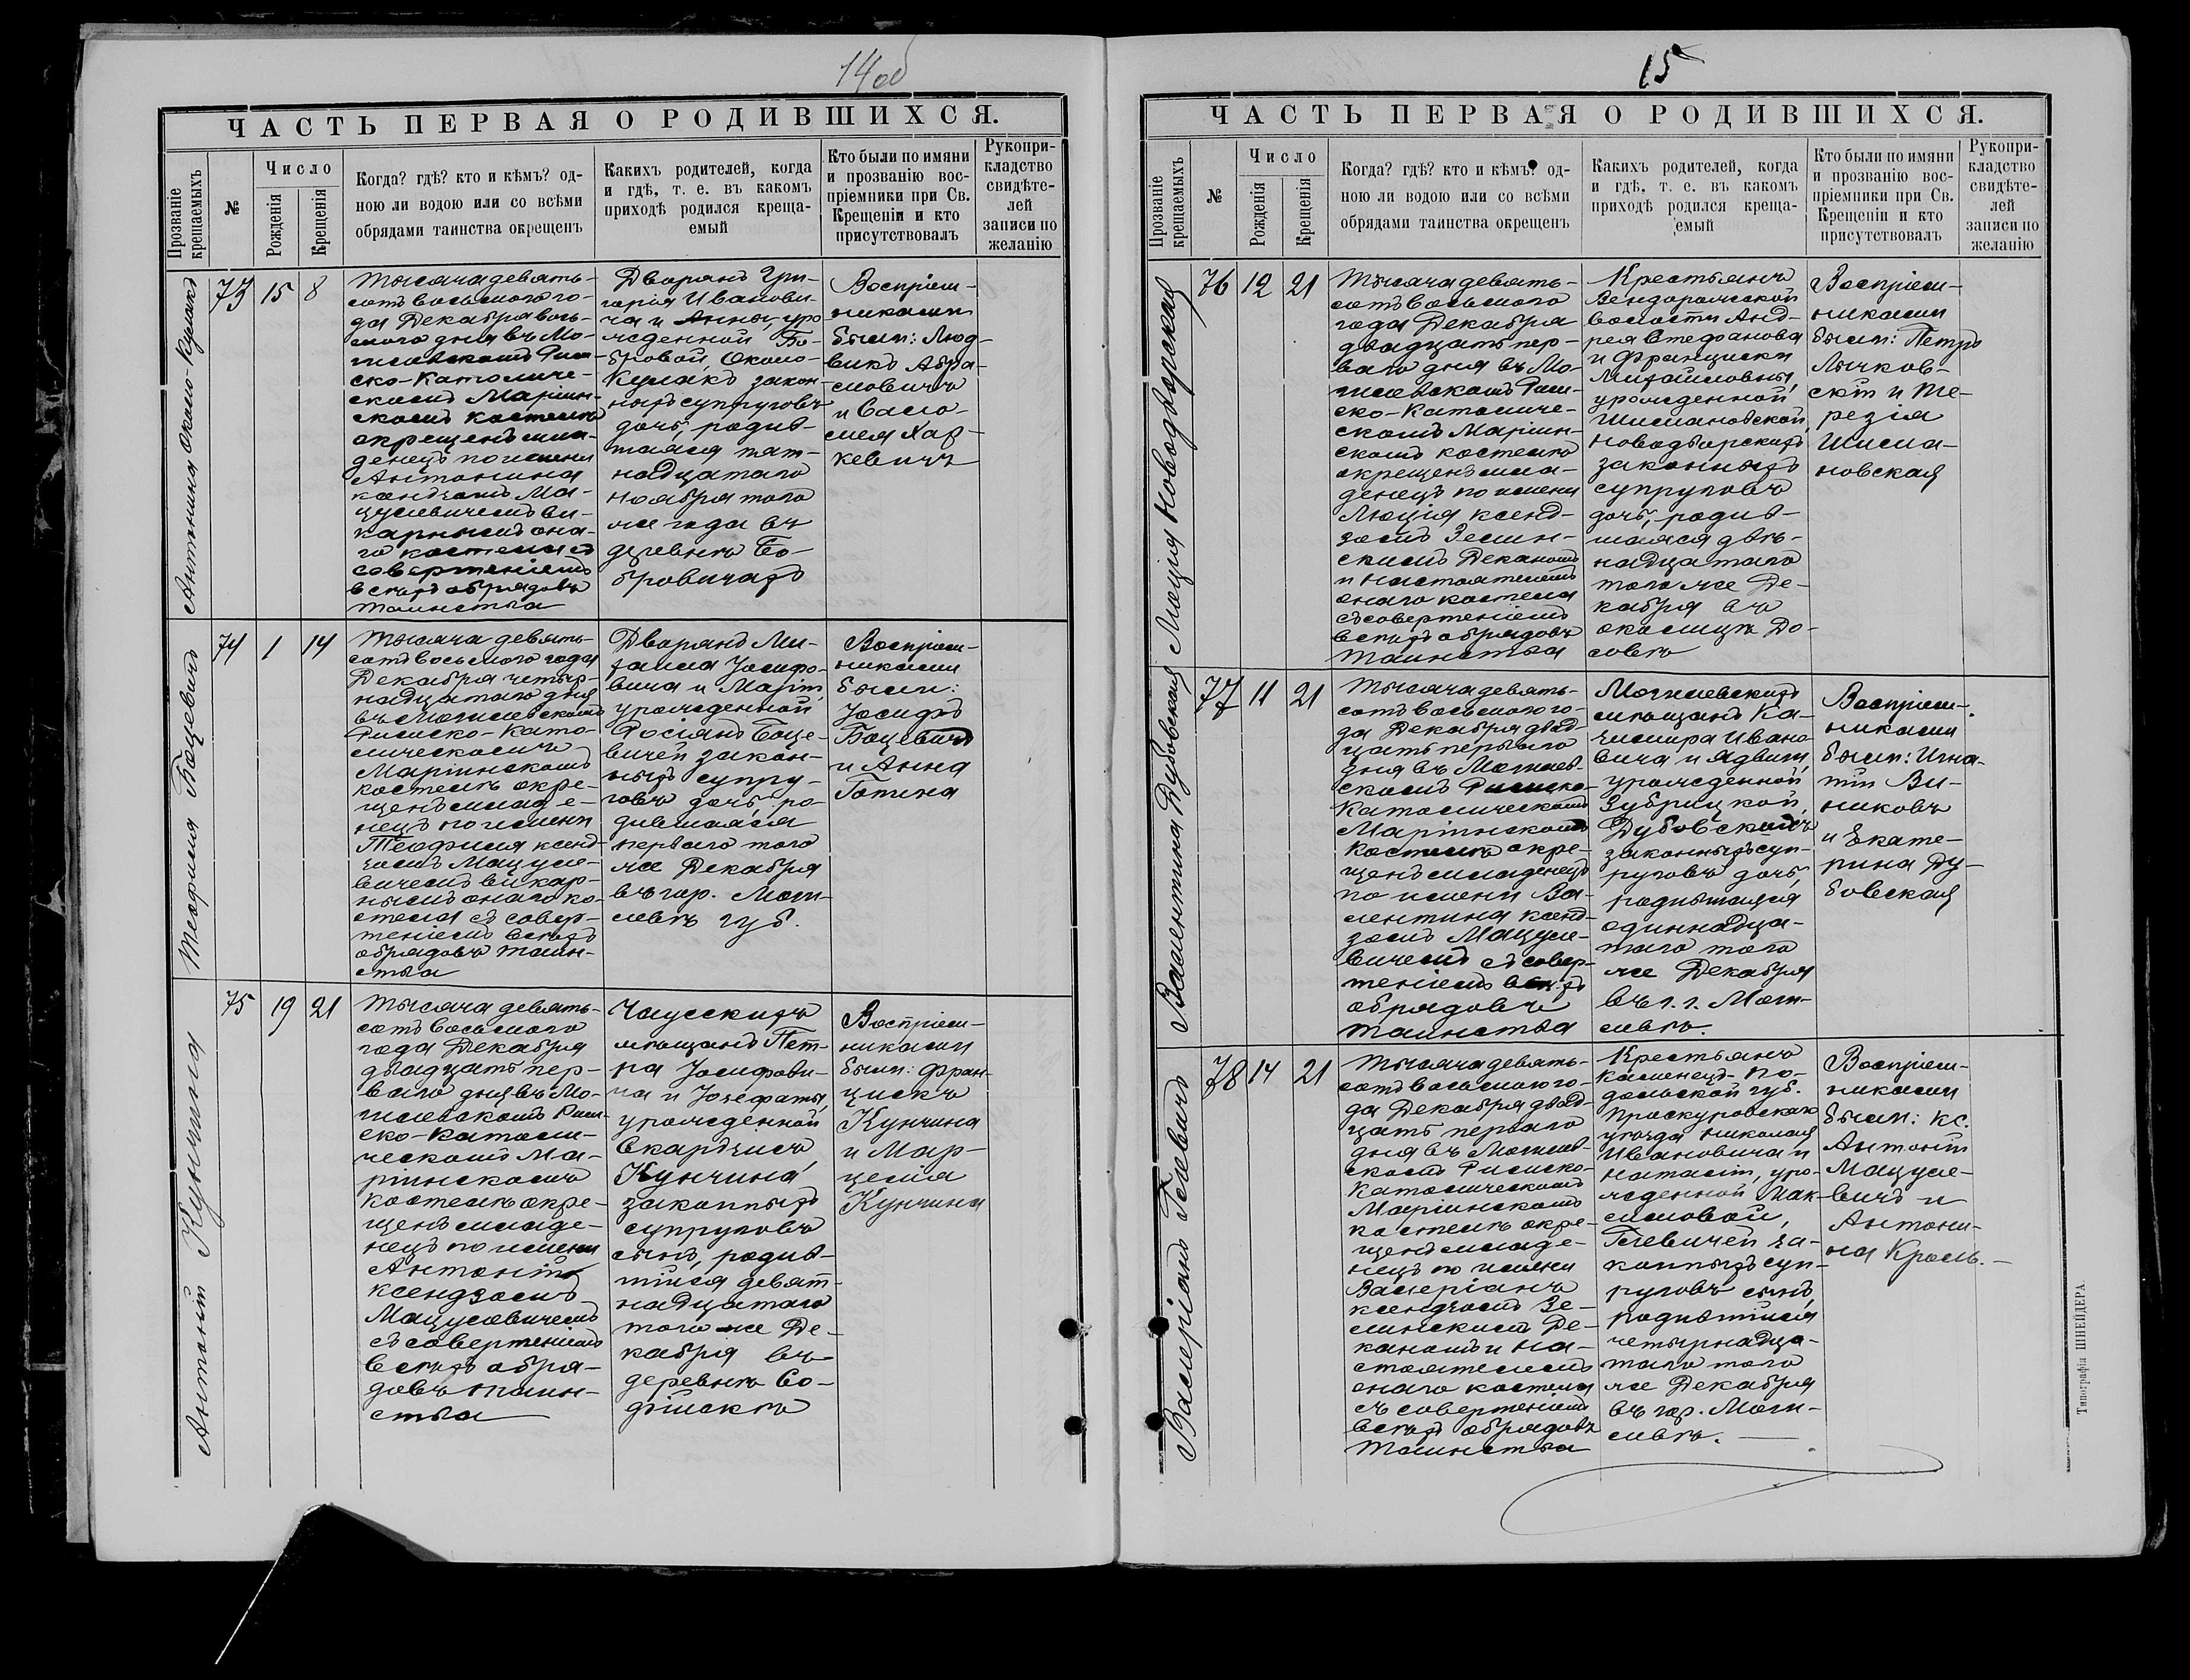 14об
ЧАСТЬ ПЕРВАЯ О РОДИВШИХСЯ.
Прозваніе крещаемыхъ
№
Число
Рожденія
Крещенія
Когда? гдѣ? кто и кѣмъ? од-
ною ли водою или со всѣми
обрядами таинства окрещенъ
Какихъ родителей, когда
и гдѣ, т. е. въ какомъ
приходѣ родился креща-
емый
Кто были по имяни
и прозванію вос-
пріемники при Св.
Крещеніи и кто
присутствовалъ
Рукопри-
кладство
свидѣте-
лей
записи по
желанію
Антонина Около-Кулакъ
73
15
8
Тысяча девять-
сотъ восьмого го-
да Декабря вось-
мого дня въ Мо-
гилевскомъ Рим-
ско-Католиче-
скомъ Маріин-
скомъ костелѣ
окрещенъ мла-
денецъ по имени
Антонина
ксендзомъ Ма-
цулевичемъ ви-
карнымъ она-
го костела съ
совершеніемъ
всѣхъ обрядовъ
таинства
Дворянъ Гри-
горія Иванови-
ча и Анны, уро
жденной Бо-
бровой, Около-
Кулакъ закон-
ныхъ супруговъ
дочь, родив-
шаяся пят-
надцатаго
ноября того
же года въ
деревнѣ Бо-
бровичахъ
Воспріем-
никами
были: Люд-
викъ Абра-
мовичъ
и Сало-
мея Хар-
кевичъ
Теофилія Боцевичъ
74
1
14
Тысяча девять-
сотъ восьмого года
Декабря четыр-
надцатаго дня
въ Могилевскомъ
Римско-Като-
лическомъ
Маріинскомъ
костелѣ окре-
щенъ младе-
нецъ по имени
Теофилія ксенд
зомъ Мацуле-
вичемъ викар-
нымъ онаго ко-
стела съ совер-
шеніемъ всѣхъ
обрядовъ таин-
ства
Дворянъ Ми-
хаила Іосифо-
вича и Маріи,
урожденной
Росіянъ Боце-
вичей закон-
ныхъ супру-
говъ дочь, ро-
дившаяся
перваго того
же Декабря
въ гор. Моги-
левѣ губ.
Воспріем-
никами
были:
Іосифъ
Боцевичъ
и Анна
Готина
Антоній Кунчина
75
19
21
Тысяча девять-
сотъ восьмого
года Декабря
двадцать пер-
ваго дня въ Мо-
гилевскомъ Рим-
ско-Католи-
ческомъ Ма-
ріинскомъ
костелѣ окре-
щенъ младе-
нецъ по имени
Антоній
ксендзомъ
Мацулевичемъ
съ совершеніемъ
всѣхъ обря-
довъ таин-
ства
Чаусскихъ
мѣщанъ Пет-
ра Іосифови-
ча и Іозефаты,
урожденной
Скардзисъ,
Кунчина
законныхъ
супруговъ
сынъ, родив-
шійся девят-
надцатаго
того же Де-
кабря въ
деревнѣ Со-
фійскѣ
Воспріем-
никами
были: Фран-
цискъ
Кунчина
и Мар-
целія
Кунчина
15
ЧАСТЬ ПЕРВАЯ О РОДИВШИХСЯ.
Прозваніе крещаемыхъ
№
Число
Рожденія
Крещенія
Когда? гдѣ? кто и кѣмъ? од-
ною ли водою или со всѣми
обрядами таинства окрещенъ
Какихъ родителей, когда
и гдѣ, т. е. въ какомъ
приходѣ родился креща-
емый
Кто были по имяни
и прозванію вос-
пріемники при Св.
Крещеніи и кто
присутствовалъ
Рукопри-
кладство
свидѣте-
лей
записи по
желанію
Люція Новодворская
76
12
21
Тысяча девять-
сотъ восьмого
года Декабря
двадцать пер-
ваго дня въ Мо-
гилевскомъ Рим-
ско-Католиче-
скомъ Маріин-
скомъ костелѣ
окрещенъ мла-
денецъ по имени
Люція ксенд-
зомъ Зелин-
скимъ Деканомъ
и настоятелемъ
онаго костела
съ совершеніемъ
всѣхъ обрядовъ
таинства
Крестьянъ
Вендорожской
волости Анд-
рея Стефанова
и Франциски
Михайловны,
урожденной
Шимановской,
Новодворскихъ
законныхъ
супруговъ
дочь, родив-
шаяся двѣ-
надцатаго
того же Де-
кабря въ
околицѣ До-
совѣ
Воспріем-
никами
были: Петръ
Лычков-
скій и Те-
резія
Шима-
новская
Валентина Дубовская
77
11
21
Тысяча девять-
сотъ восьмого го-
да Декабря двад-
цать перваго
дня въ Могилев-
скомъ Римско-
Католическомъ
Маріинскомъ
костелѣ окре-
щенъ младенецъ
по имени Ва-
лентина ксенд-
зомъ Мацуле-
вичемъ съ совер-
шеніемъ всѣхъ
обрядовъ
таинства
Могилевскихъ
мѣщанъ Ка-
зимира Ивано-
вича и Ядвиги,
урожденной
Зубрицкой,
Дубовскихъ
законныхъ суп-
руговъ дочь,
родившаяся
одиннадца-
таго того
же Декабря
въ г. г. Моги-
левѣ.
Воспріем-
никами
были: Игна-
тій Ви-
никовъ
и Екате-
рина Ду-
бовская
Валеріанъ Гілевичъ
78
14
21
Тысяча девять-
сотъ восьмого го-
да Декабря двад-
цать перваго
дня въ Могилев-
скомъ Римско-
Католическомъ
Маріинскомъ
костелѣ окре-
щенъ младе-
нецъ по имени
Валеріанъ
ксендзомъ Зе-
линскимъ Де-
каномъ и на-
стоятелемъ
онаго костела
съ совершеніемъ
всѣхъ обрядовъ
таинства
Крестьянъ
Каменецъ-По-
дольской губ.
Проскуровскаго
уѣзда Николая
Ивановича и
Наталіи, уро-
жденной Мак-
симовой,
Гілевичей за-
конныхъ суп-
руговъ сынъ,
родившійся
четырнадца-
таго того
же Декабря
въ гор. Моги-
левѣ.
Воспріем-
никами
были: кс.
Антоній
Мацуле-
вичъ и
Антони-
на Кроль.
Типографія ШНЕЙДЕРА.